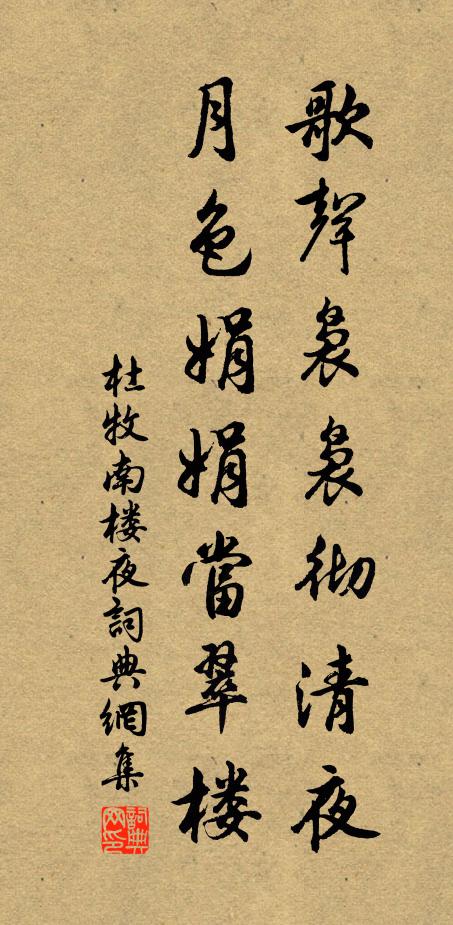 歌聲裊裊彻清夜
月色娟娟當翠楼
杜牧南楼夜詞典網集
詞典
网印